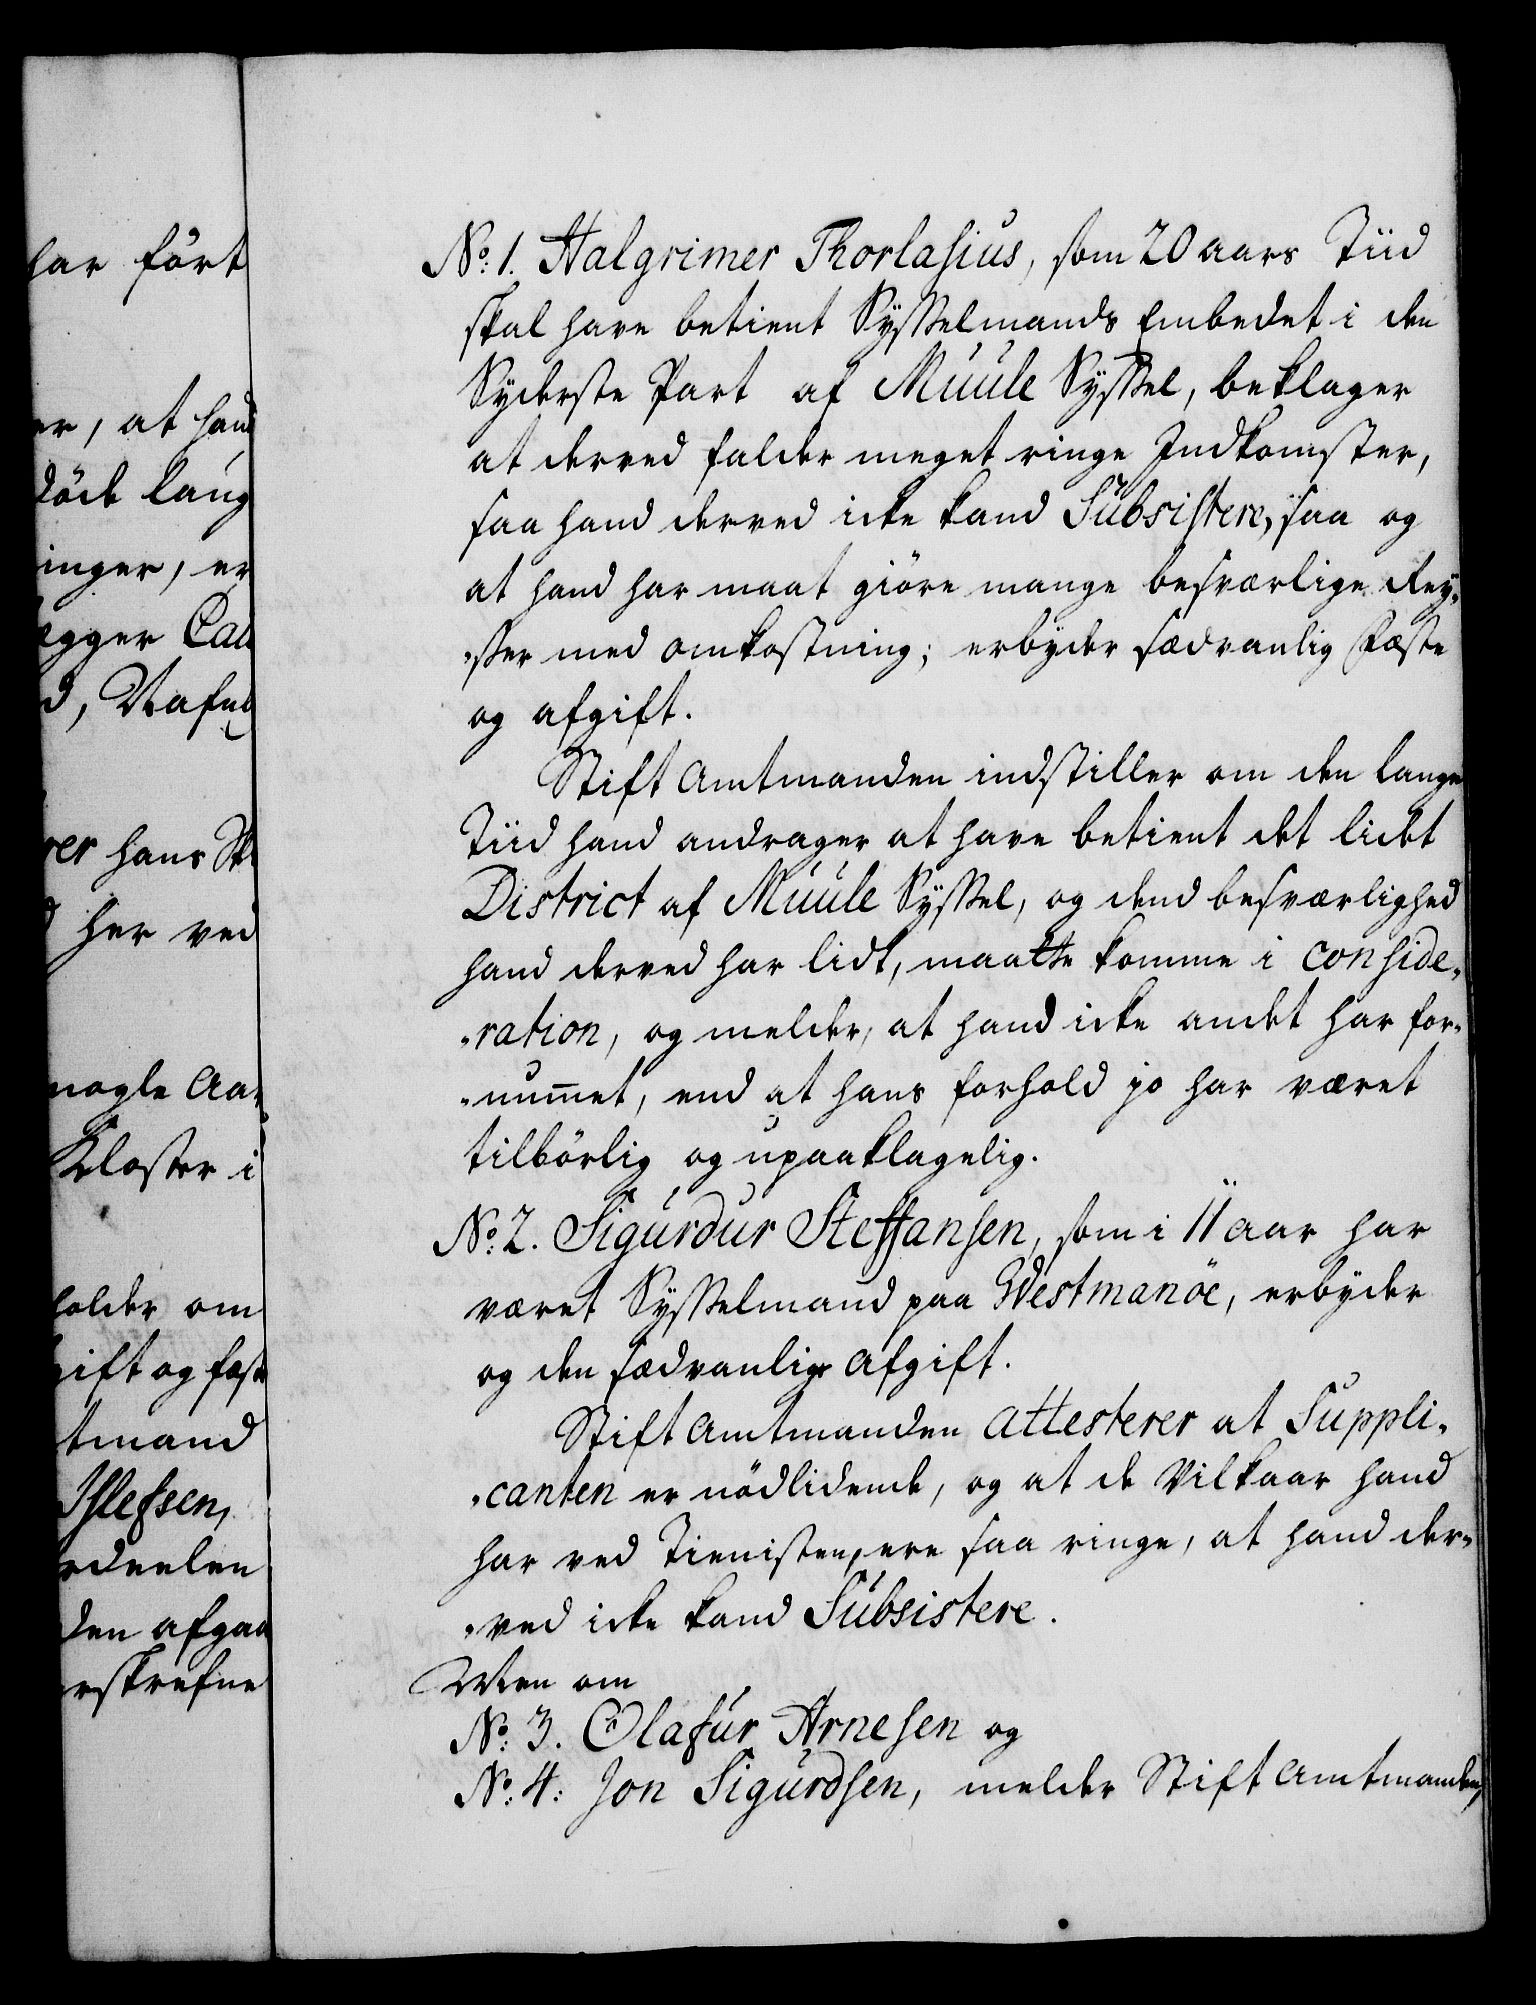 har ført
er, at hand
døde lang
inger, er
ægger Call
d, Nafnl
ver hans Sk
d her ved
nogle Aar
Kloster i
holder om
gift og fæste
tmand
Islefsen,
rdeelen
den afgaa
erskrefne
No: 1. Halgrimer Thorlasius, som 20 aars Tiid
skal have betient Sysselmands Embedet i den
Syderste Part af Muule Syssel, beklager
at derved falder meget ringe Indkomster,
saa hand derved icke kand Subsistere, saa og
at hand har maat giöre mange besværlige Rey-
-ser med omkostning; erbyder sædvanlig Fæste
og afgift.
Stift Amtmanden indstiller om den lange
Tiid hand andrager at have betient det lidet
District af Muule Syssel, og dend besværlighed
hand derved har lidt, maatte komme i conside-
-ration, og melder, at hand icke andet har for-
-nummet, end at hans forhold jo har været
tilbörlig og upaaklagelig.
No: 2. Sigurdur Steffansen, som i 11 aar har
været Sysselmand paa Westmanöe, erbyder
og den sædvanlige Afgift.
Stift Amtmanden attesterer at Suppli-
-canten er nödlidende, og at de Vilkaar hand
har ved Tienisten, ere saa ringe, at hand der-
-ved icke kand Subsistere.
Men om
No: 3. Olafur Arnesen og
No: 4: Jon Sigurdsen, melder Stift Amtmanden,